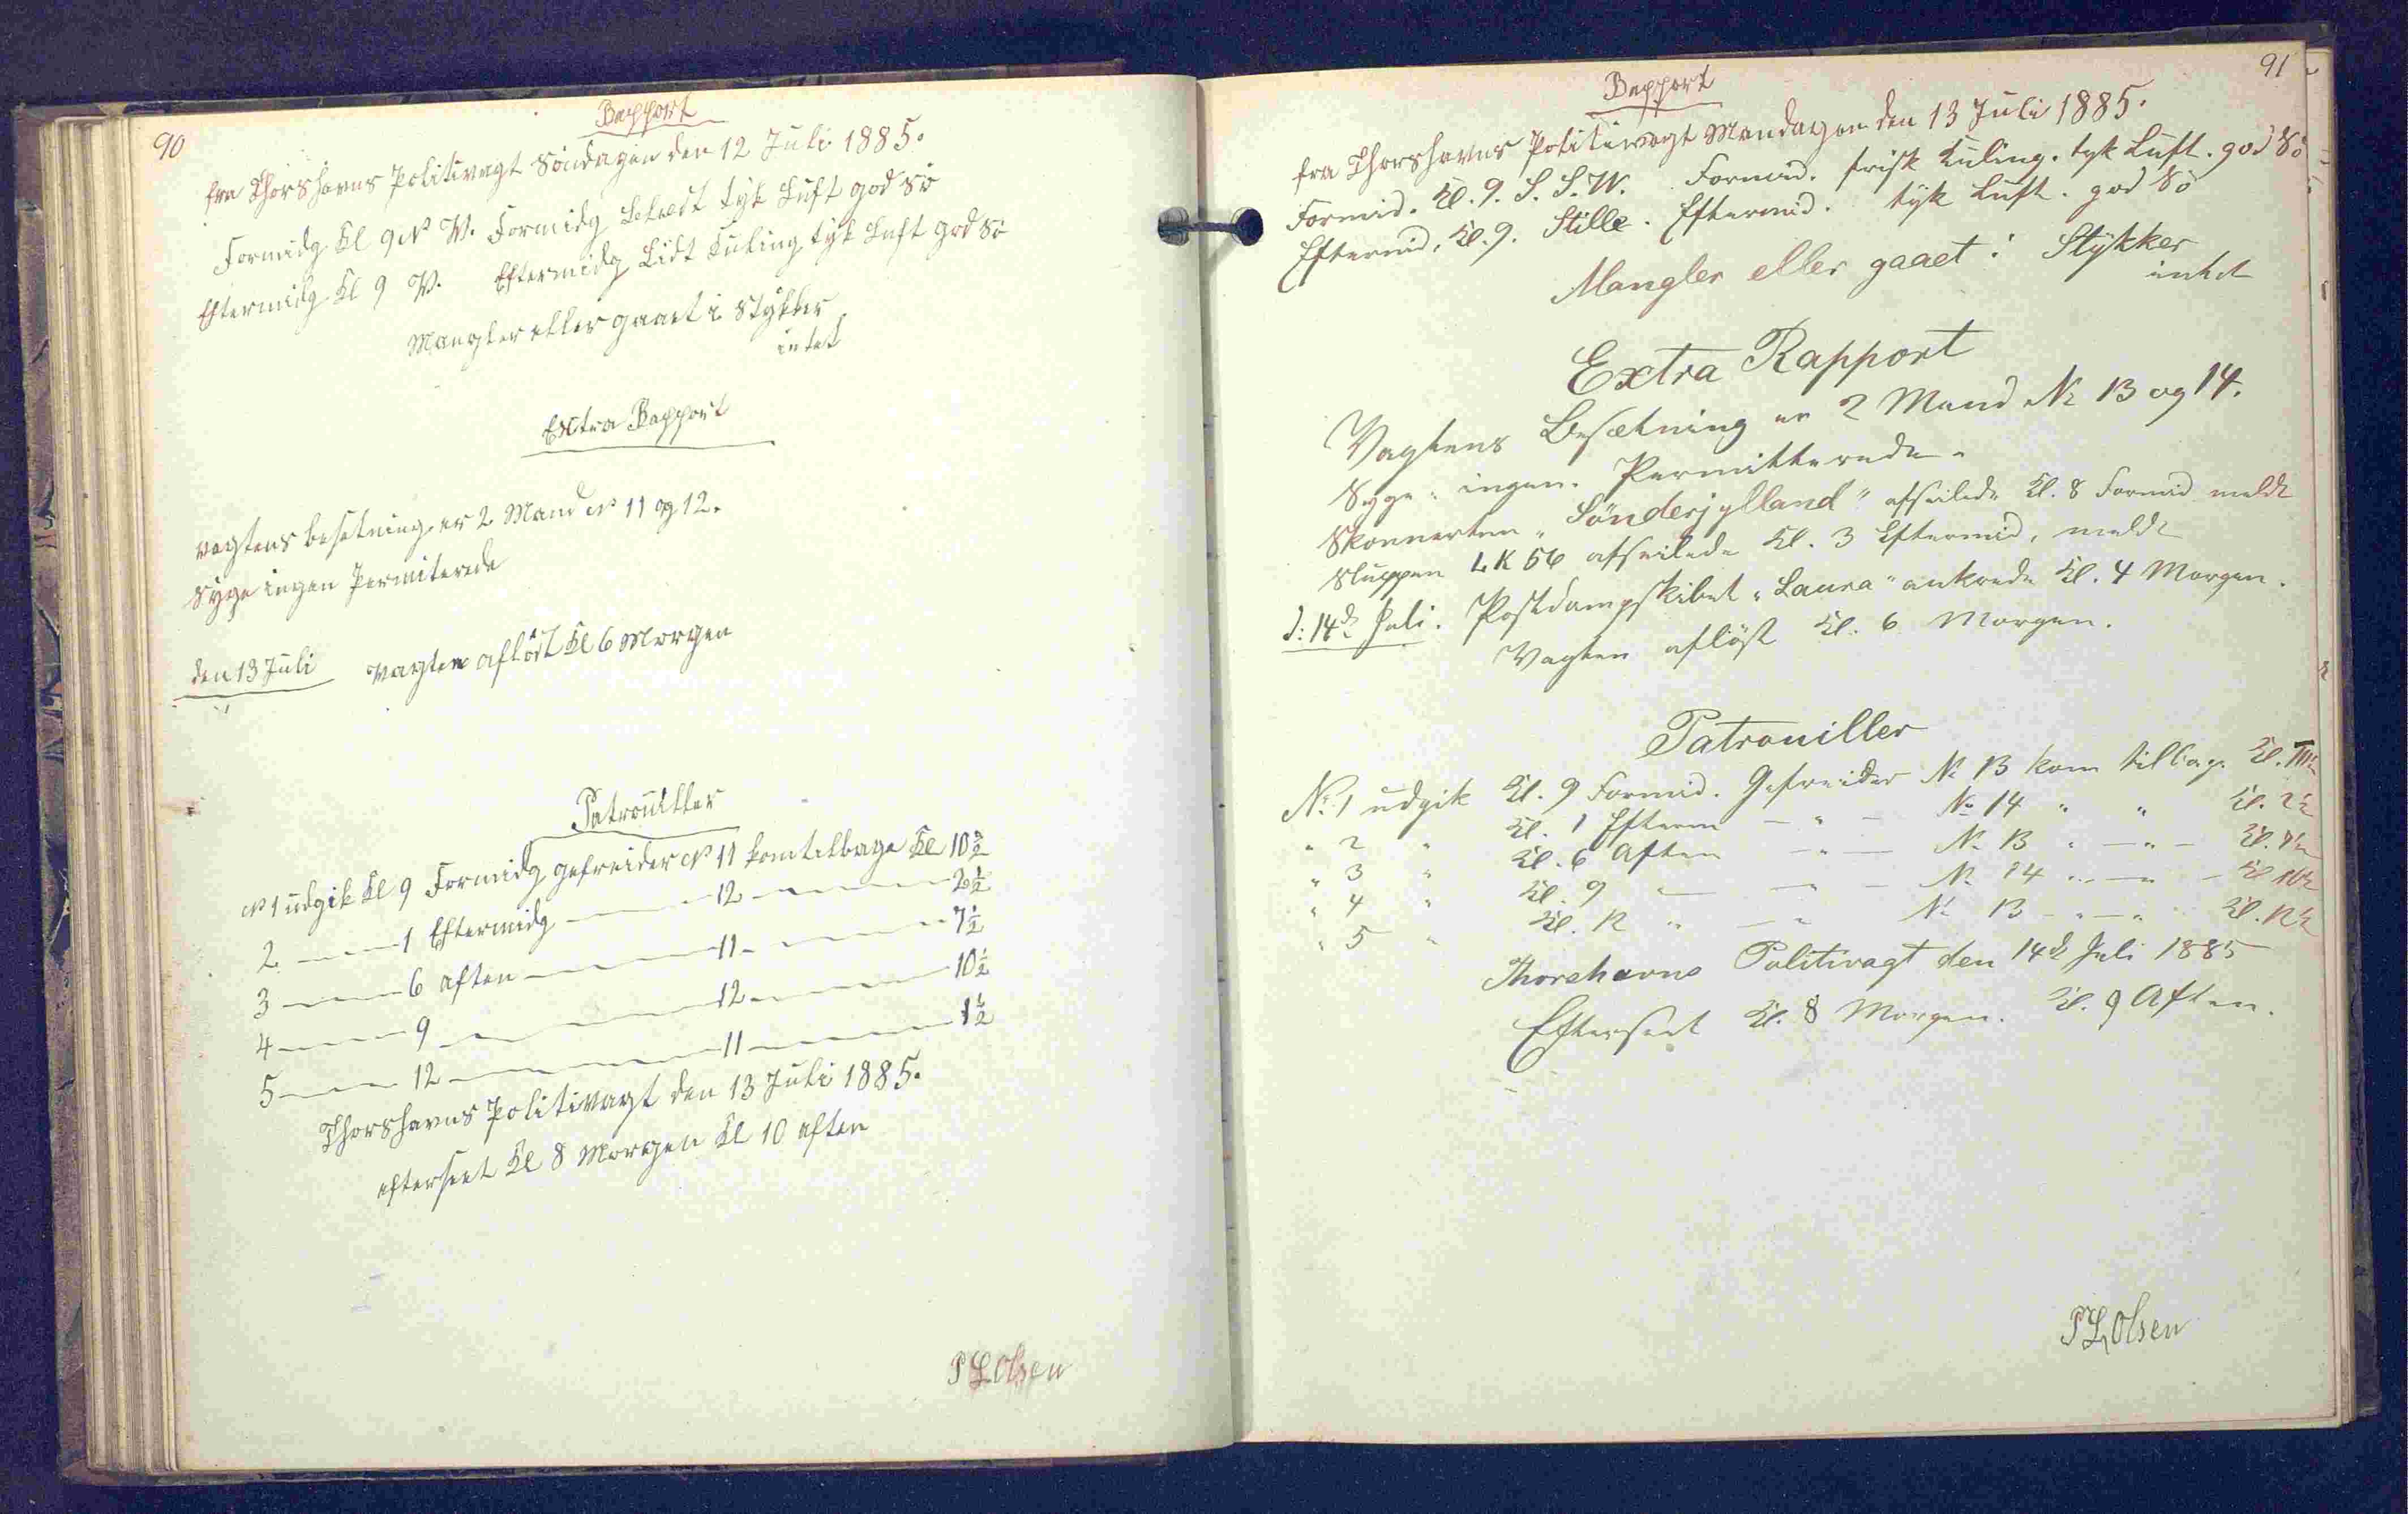 90
Rapport
fra Thorshavns Politivagt Söndagen den 12 Juli 1885.
Formidg Kl 9 N W. Formidg Lekect tyk Luft god Sö
Eftermidg Kl 9 W. Eftermidg Lidt Kuling tyk Luft god Sö
Mangler eller gaaet i Stykker
intet
Extra Rapport
Vagtens besetning er 2 Mand No 11 og 12.
Syge ingen Permiterede
den 13 Juli Vagten aflöst Kl 6 Morgen
Patrouiller
No 1 udgik Kl 9 Formidg gefreider No 11 kom tilbage Kl 10 1/2
2 — — 1 Eftermidg — — 12 — — 2 1/2
3 — — 6 aften — — 11 — — 7 1/2
4 — — 9 — — 12 — — 10 1/2
5 — — 12 — — 11 — — 1 1/2
Thorshavns Politivagt den 13 Juli 1885.
efterseet Kl 8 Morgen Kl 10 aften
P L Olsen
91
Rapport
fra Thorshavns Politivagt Mandagen den 13 Juli 1885.
Formid. Kl. 9. S. S. W. Formid. frisk Kuling. tyk Luft. god Sö
Eftermid. Kl. 9. Stille. Eftermid. tyk Luft. god Sö
Mangler eller gaaet i Stykker
intet
Extra Rapport
Vagtens Besætning er 2 Mand No 13 og 14.
Syge " ingen. Permitterede "
Skonnerten "Sönderjylland" afseilede Kl. 8 Formid meldt
Sluppen LK 56 afseilede Kl. 3 Eftermid, meldt
d: 14de Juli. Postdampskibet "Laura" ankrede Kl. 4 Morgen.
Vagten aflöst Kl. 6 Morgen.
Patrouiller
No. 1 udgik Kl. 9 Formid. Gefreider No 13 kom tilbage Kl.
" 2 " Kl. 1 Efterm — " — No 14 " " Kl. 2 1/2
" 3 " Kl. 6 Aften — " — No 13 " — " — Kl. 7 1/2
" 4 " Kl. 9 — — " — No 14 " — " — Kl. 10 1/2
" 5 " Kl. 12 " — " No 13 — " — " Kl.
Thorshavns Politivagt den 14de Juli 1885
Efterseet Kl. 8 Morgen. Kl. 9 Aften.
P L Olsen